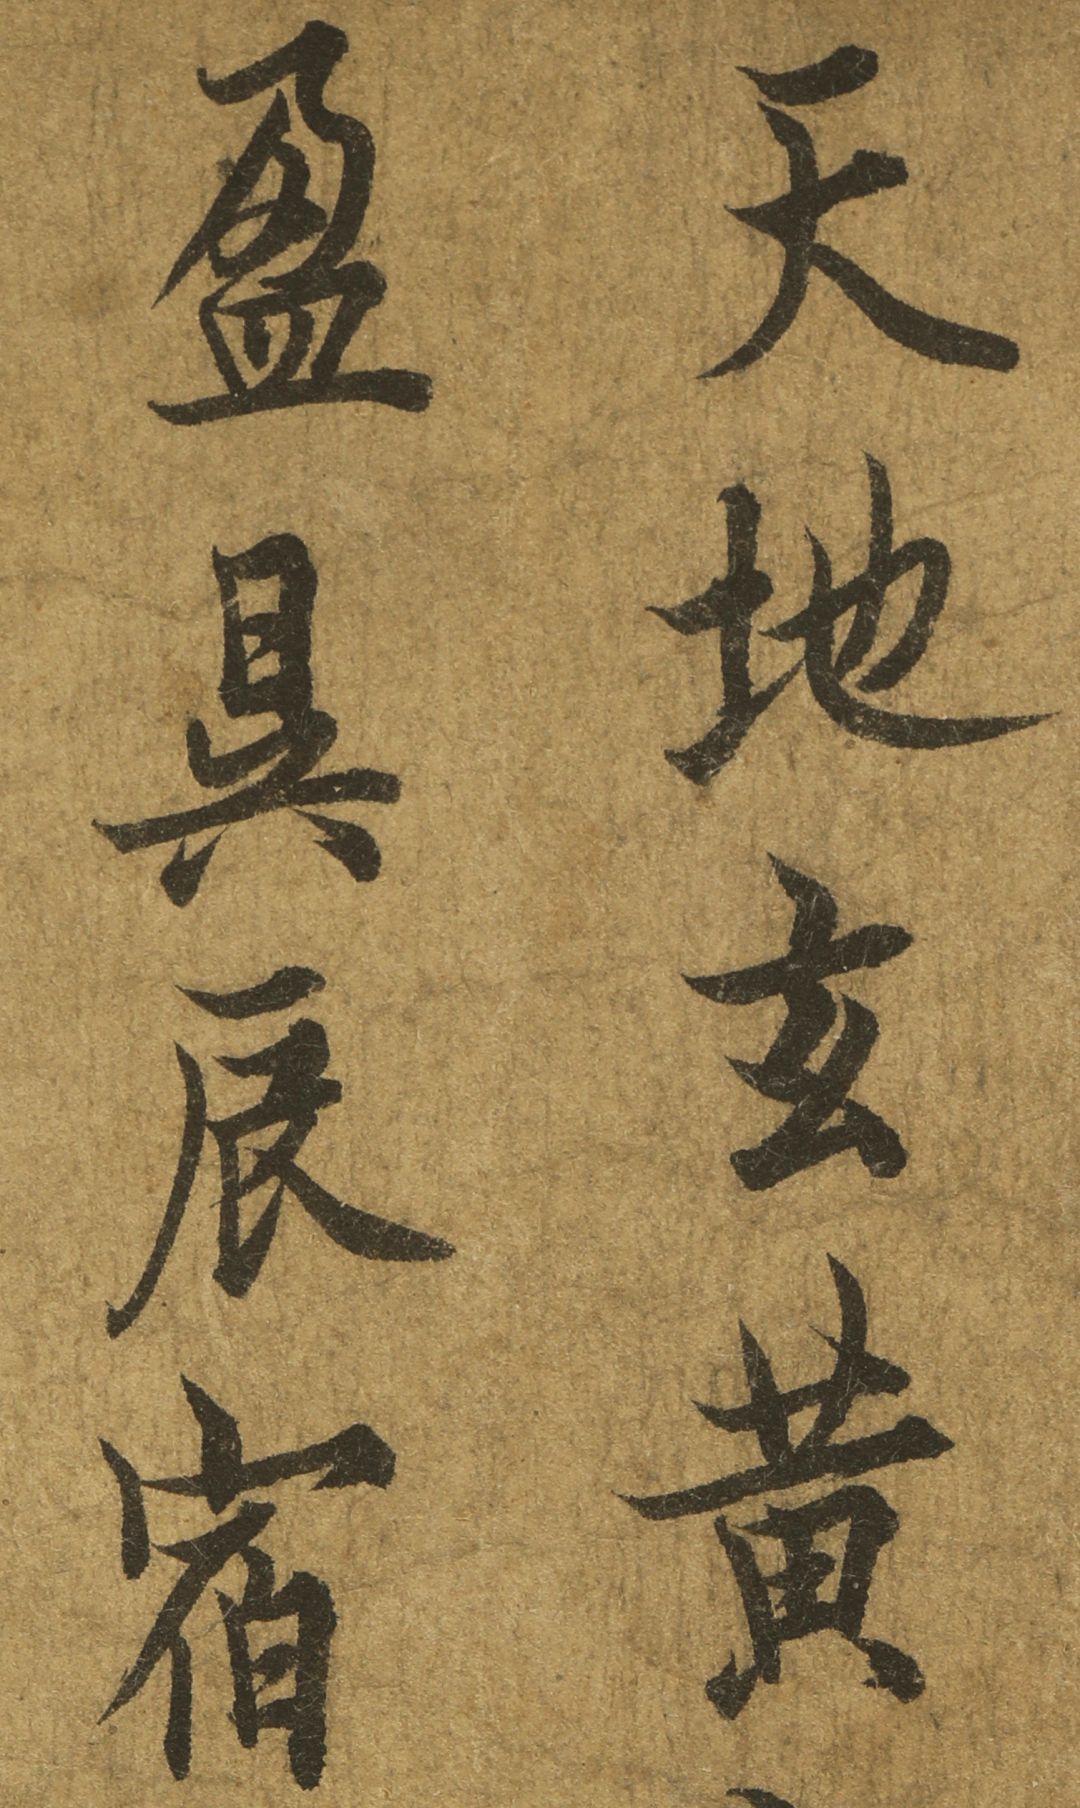 天地玄黄
盈具辰宿